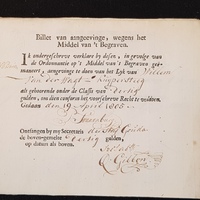 Billet van aangeevinge, wegens het
Middel van 't Begraven.
Ik ondergeschreve verklare by desen, in gevolge van
de Ordonnantie op 't Middel van 't Begraven ge-
maneert, aangevinge te doen van het Lyk van Willem
Van der Vagt
als gehoorende onder de Classis van Dertig
gulden, om dien conform het voorschreve Recht te voldoen.
Gedaan den 19 April 1805
Ontfangen by my Secretaris der Stad Gouda
de bovengemelte Dertig gulden,
op dato als boven.